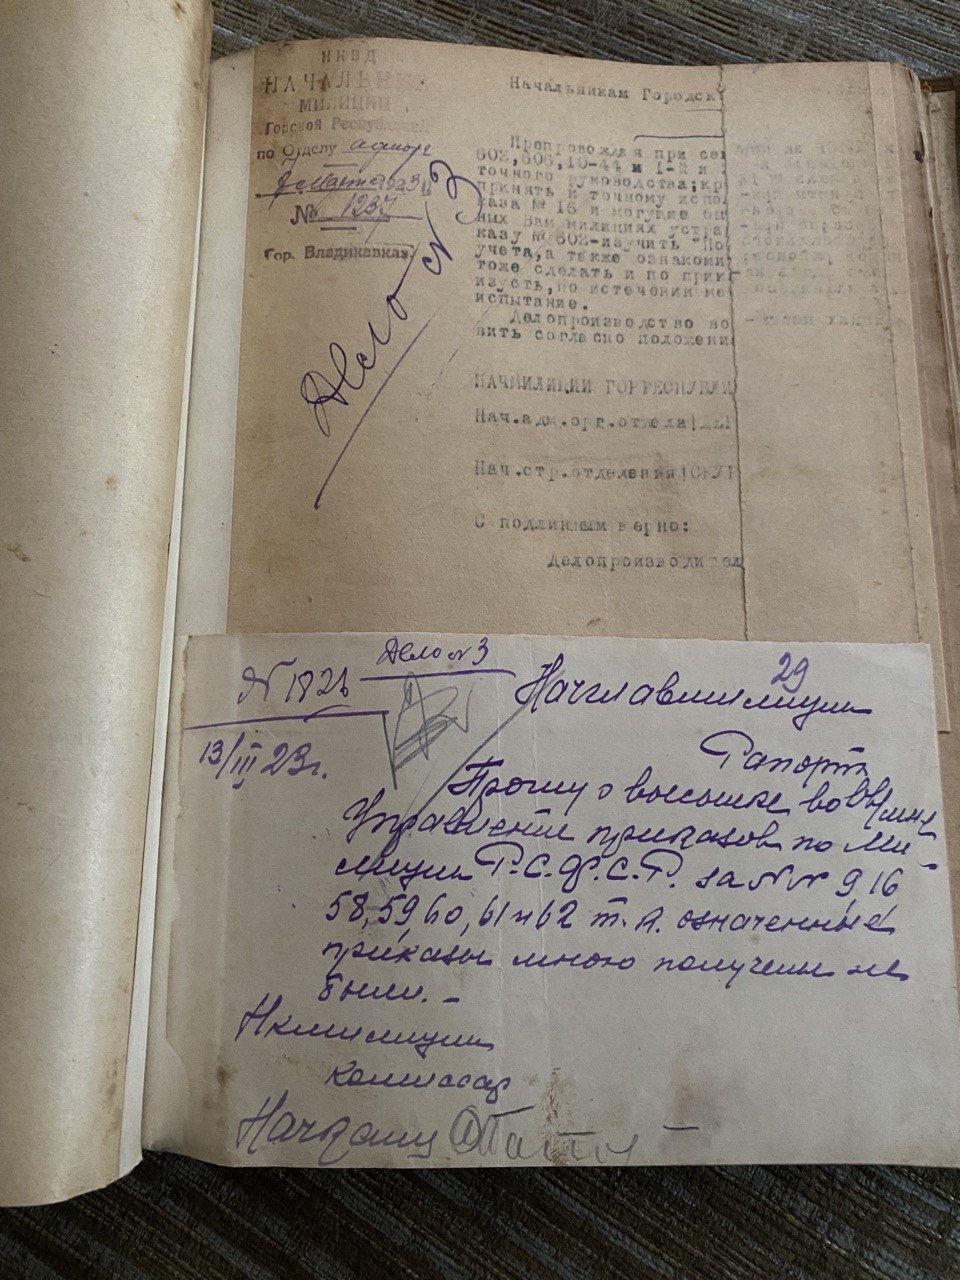 НКВД
НАЧАЛЬНИК
МИЛИЦИИ
Горской Республики
по Отделу
Марта 1923
№ 1237
Гор. Владикавказ.
Дело № 3
Начальникам Городск
Препровождая при се
602,606,10-44 и 1-й и
точного руководства; кр
принять к точному испо
каза № 16 и могущие бы
них Вам милициях устра
казу № 602-изучить "По
учета, а также ознакоми
тоже сделать и по прик
изусть, по истечении ме
испытание.
Делопроизводство во
вить согласно положени
НАЧМИЛИЦИИ ГОРРЕСПУБЛИ
Нач.адм.орг.отдела
Нач.стр.отделения
С подлинным верно:
Делопроизводител
Дело № 3
29
13/III 23г.
Начглавмилиции
Рапорт
Прошу о высылке во
Управление приказов по Ми-
лиции Р.С.Ф.С.Р. за №№ 9 16
58, 59, 60, 61 и 62 т.к. означенные
приказы мною получены не
были. -
милиции
комиссар